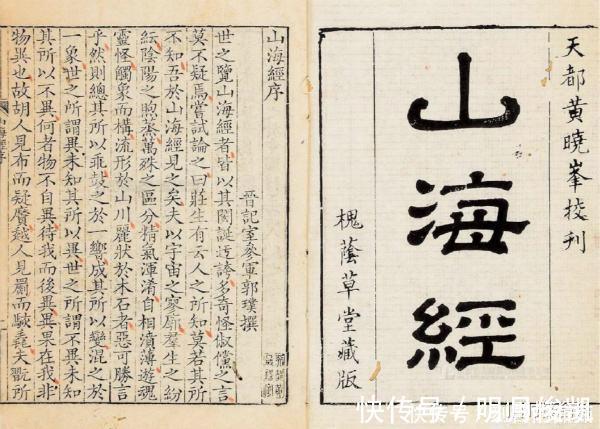 天都黄曉峯挍刊
山海經
槐蔭草堂藏版
山海經序
晉記室參軍郭璞撰
世之覽山海經者皆以其閎誕迂誇多奇怪俶儻之言
莫不疑焉嘗試論之曰莊生有云人之所知莫若其所
不知吾於山海經見之矣夫以宇宙之寥廓羣生之紛
紜陰陽之煦蒸萬殊之區分精氣渾淆自相濆薄遊魂
靈怪觸象而構流形於山川麗狀於木石者惡可勝言
乎然則總其所以乖鼓之於一響成其所以變混之於
一象世之所謂異未知其所以異世之所謂不異未知
其所以不異何者物不自異待我而後異異果在我非
物異也故胡人見布而疑黂越人見罽而駭毳夫翫所
快传号